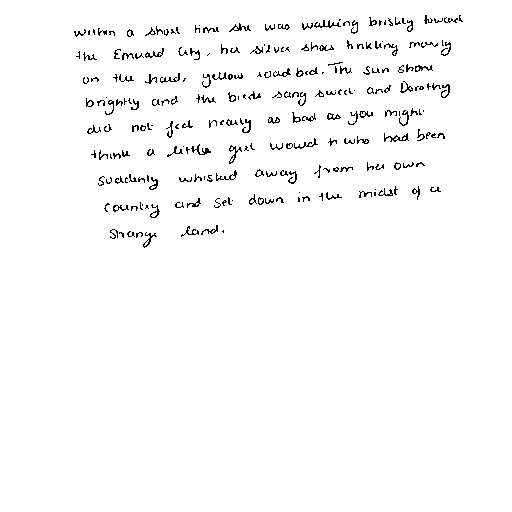 within a short time she was walking briskly toward
the Emerald City, her silver shoes tinkling merrily
on the hard, yellow roadbed. The sun shone
brightly and the birds sang sweet and Dorothy
did not feel nearly as bad as you might
think a little girl would n who had been
suddenly whisked away from her own
country and set down in the midst of a
strange land.